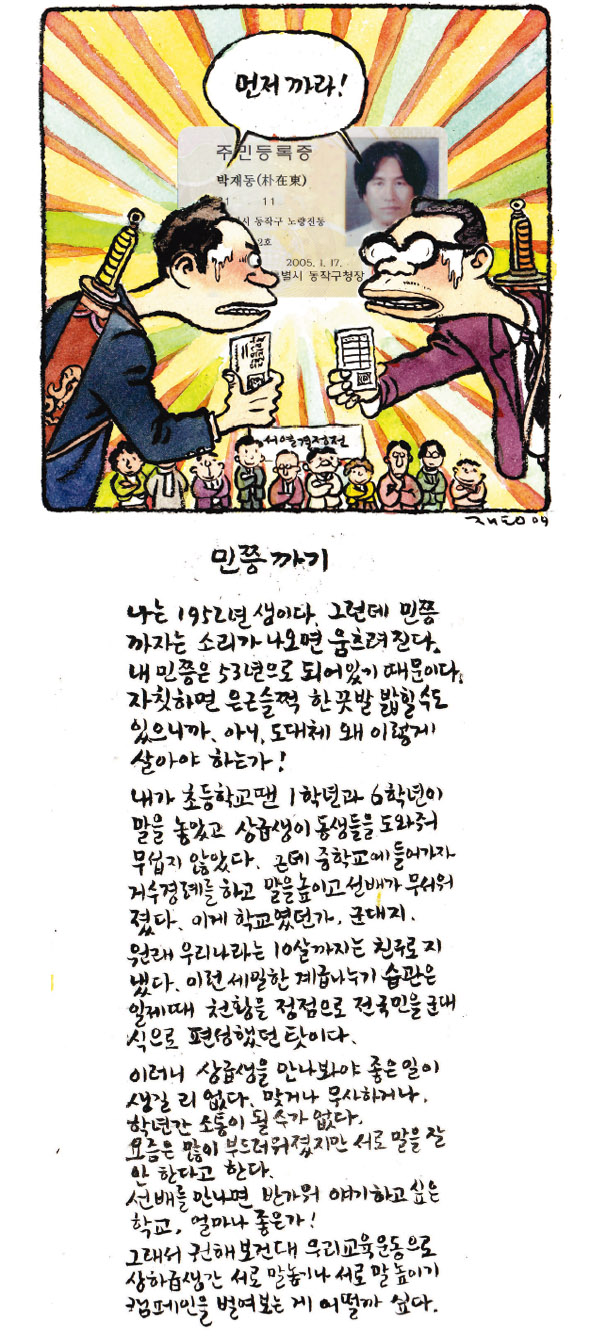 먼저 까라!
주민등록증
박재동(朴在東)
11
시 동작구 노량진동
2호
2005. 1. 17.
별시 동작구청장
서열결정전
재동 09
민쯩 까기
나는 1952년 생이다. 그런데 민쯩
까자는 소리가 나오면 움츠려진다.
내 민쯩은 53년으로 되어있기 때문이다.
자칫하면 은근슬쩍 한 끗발 밟힐 수도
있으니까. 아니, 도대체 왜 이렇게
살아야 하는가!
내가 초등학교땐 1학년과 6학년이
말을 놓았고 상급생이 동생들을 도와줘
무섭지 않았다. 근데 중학교에 들어가자
거수경례를 하고 말을 높이고 선배가 무서워
졌다. 이게 학교였던가, 군대지.
원래 우리나라는 10살까지는 친구로 지
냈다. 이런 세밀한 계급나누기 습관은
일제때 천황을 정점으로 전국민을 군대
식으로 편성했던 탓이다.
이러니 상급생을 만나봐야 좋은 일이
생길 리 없다. 맞거나 무시하거나.
학년간 소통이 될 수가 없다.
요즘은 많이 부드러워졌지만 서로 말을 잘
안 한다고 한다.
선배를 만나면 반가워 얘기하고 싶은
학교, 얼마나 좋은가!
그래서 권해보건대 우리교육운동으로
상하급생간 서로 말놓기나 서로 말 높이기
캠페인을 벌여보는 게 어떨까 싶다.